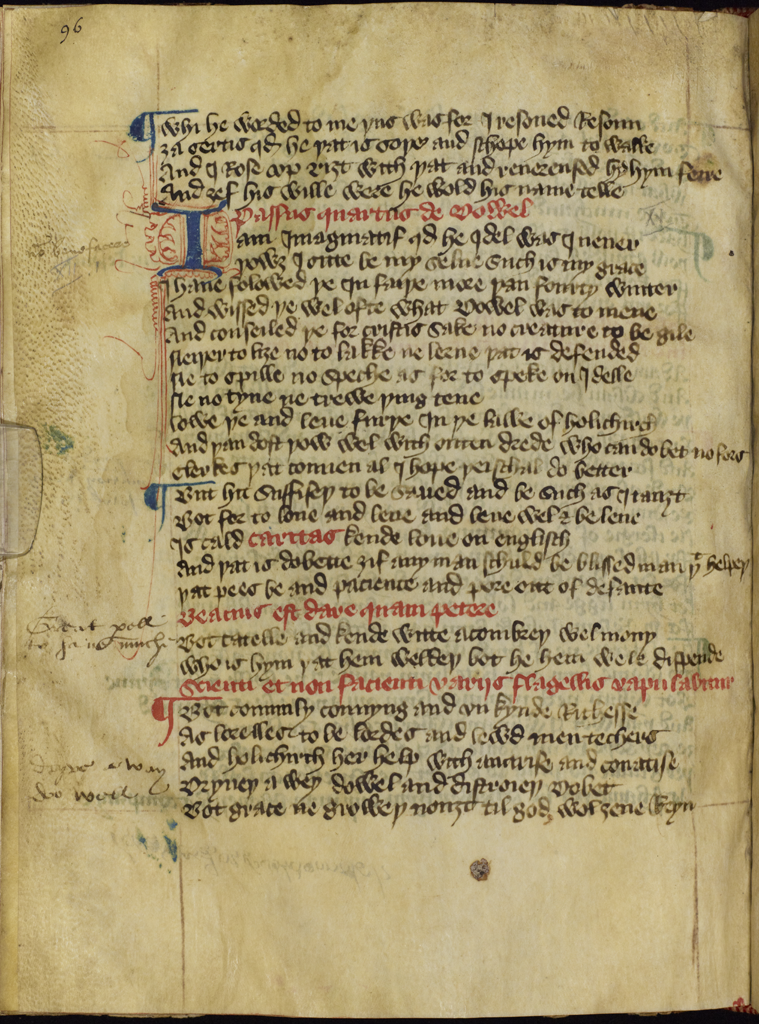 96
Whi he worded to me þus was for I resoned Resoun
ȝa certis qd he þat is soþe and schope hym to walke
And I Rose vop riȝt with þat and reuerensed hym ferre
And ȝef his wille were he wold his name telle
Passus quartus de Dowel
I am Imaginatif qd he Idel was I neuer
þowȝ I sitte be my selue such is my grace
I haue folowed þe In faiþe more þan fourty winter
And wissed þe wel ofte what Dowel was to mene
And conseiled þe for cristis sake no creature to be gile
Neiþer to lize no to lakke ne lerne þat is defended
Ne to spille no speche as for to speke on Idelle
Ne no tyne ne trewe þing tene
Lowe þe and leue furþe In þe lawe of holichirch
And þan dost þow wel with outen drede who can do bet no fors
Clerkes þat connen al I hope þei schal do better
But hit suffiseþ to be saued and be such as I tauȝt
Bot for to loue and leue and leue wel & beleue
Is cald caritas kende loue on englisch
And þat is dobette ȝif any man schuld be blissed man þt helpeþ
þat pees be and pacience and pore out of defaute
Beatius est dare quam petere
Bot catelle and kende witte acombreþ wel mony
Who is hym þat hem weldeþ bot he hem wele dispende
Scienti et non facienti varijs flagellis vapulabitur
Bot commly connyng and vn kynde Richesse
As lorelles to be lordes and lewd men techers
And holichirch her help with auarise and couatise
Dryueþ a wey dowel and distroieþ Dobet
Bot grace ne groweþ nouȝt til god wol ȝeue Reyn
dryve a way
doo well